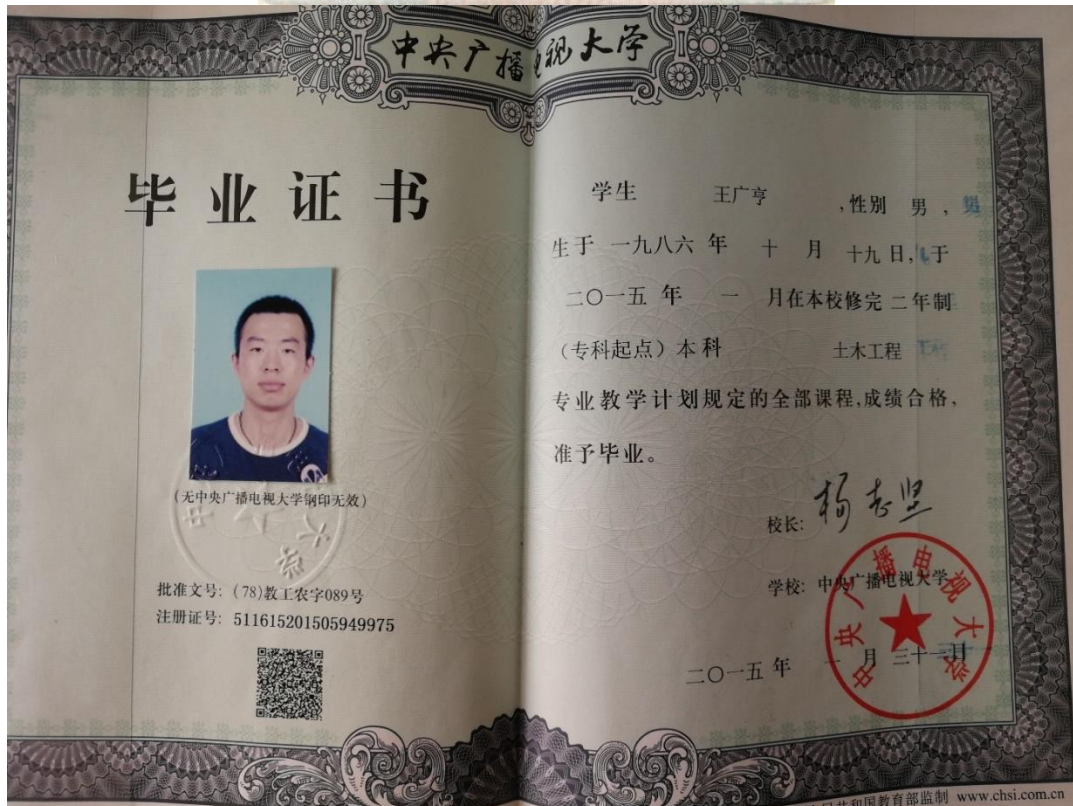 中央广播电视大学
毕业证书
(无中央广播电视大学钢印无效)
批准文号: (78)教工农字089号
注册证号: 511615201505949975
学生 王广亨 ,性别 男 ,
生于 一九八六 年 十 月 十九 日, 于
二〇一五 年 一 月在本校修完 二 年制
(专科起点) 本科 土木工程
专业教学计划规定的全部课程,成绩合格,
准予毕业。
校长: 杨志坚
学校: 中央广播电视大学
中央广播电视大学
二〇一五 年 一 月 三十一 日
共和国教育部监制 www.chsi.com.cn